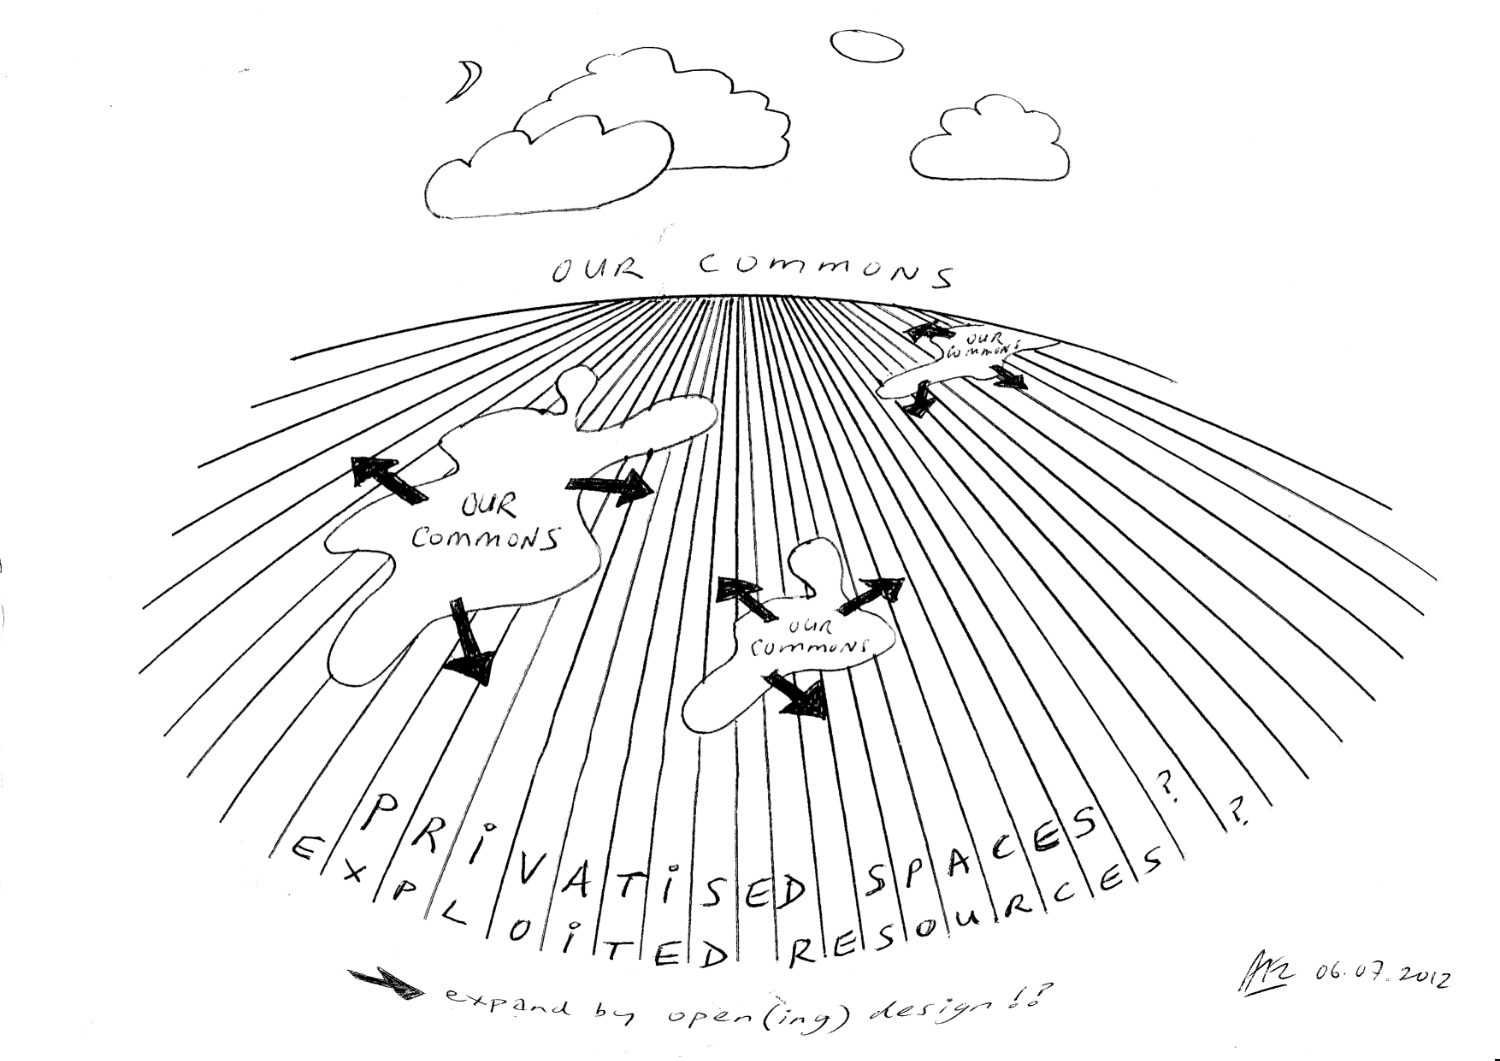 OUR COMMONS
OUR
COMMONS
OUR
COMMONS
OUR
COMMONS
PRiVATiSED SPACES ?
EXPLOiTED RESOURCES ?
expand by open(ing) design!?
06.07.2012